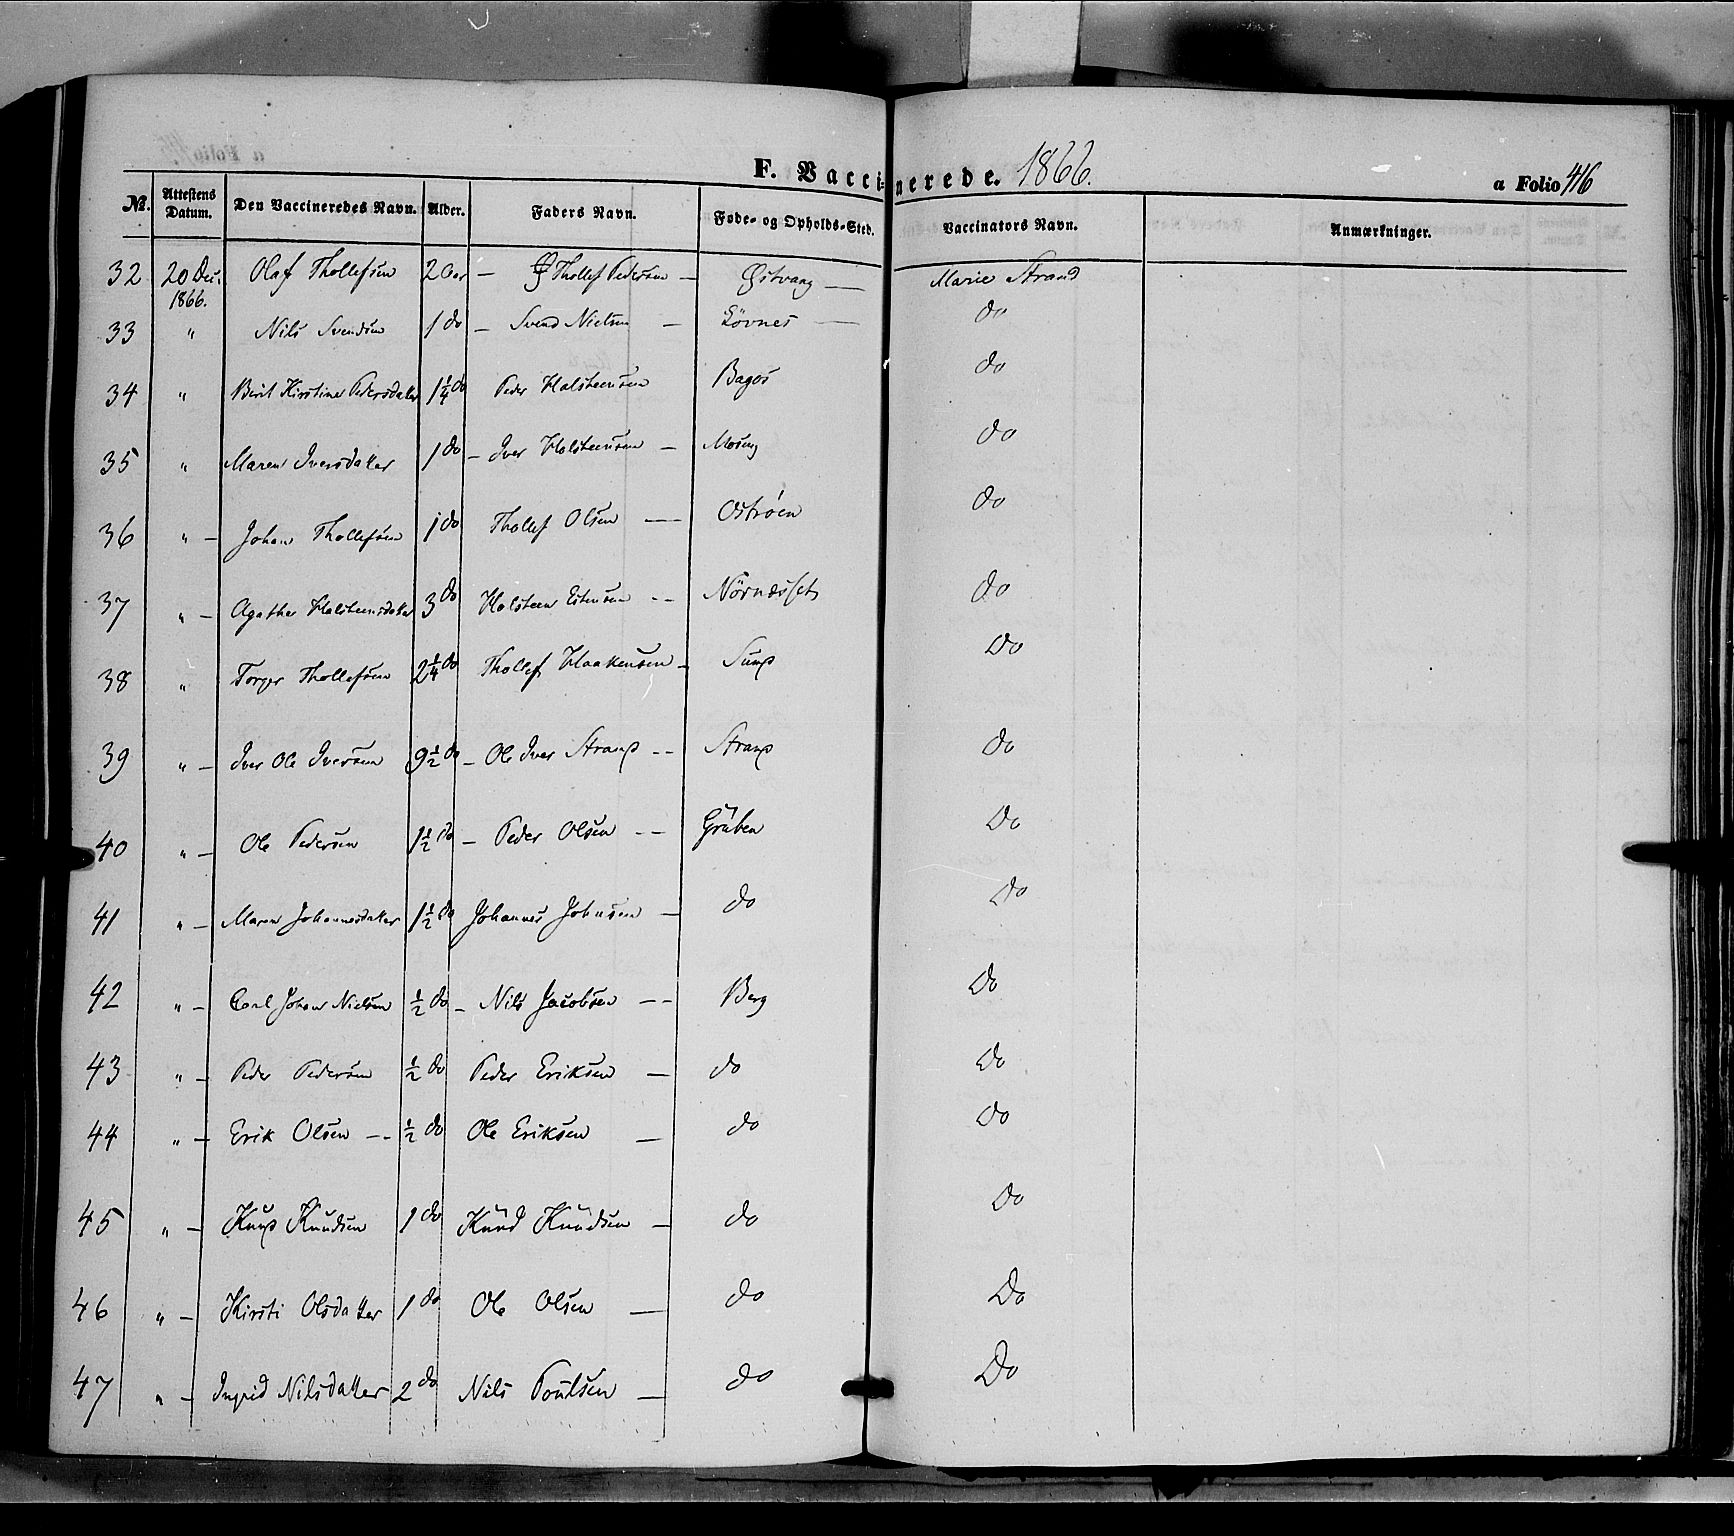 F. Vaccinerede. 1866.
a Folio 416
№. Attestens Datum. Den Vaccineredes Navn. Alder. Faders Navn. Føde- og Opholds-Sted. Vaccinators Navn. Anmærkninger.
32 20 Dec. 1866. Olaf Thollefsen 2 Aar — Thollef Pedersen — Østvang — Marie Strand
33 " Nils Svendsen 1 do — Svend Nielsen — Lövnes — do
34 " Berit Kirstine Pedersdatter 1¼ do Peder Halsteensen Bagos do
35 " Maren Iversdatter 1 do — Iver Halsteensen — Moseng do
36 " — Johan Thollefsen 1 do Thollef Olsen — Ostrøen do
37 " — Agathe Halsteensdatter 3 do Halsteen Estensen -- do
38 " Torger Thollefsen 2¼ do Thollef Haakensen - Sund Do
39 " — Iver Ole Iversen 9½ do — Ole Iver Strand -- Strand do
40 " — Ole Pedersen 1½ do — Peder Olsen -- Gruben Do
41 " — Maren Johannesdatter 1½ do Johannes Johnsen — do Do
42 " — Carl Johan Nielsen ½ do — Nils Jacobsen -- Berg Do
43 " — Peder Pedersen ½ do Peder Eriksen — do Do
44 " — Erik Olsen -- ½ do Ole Eriksen — do Do
45 " — Knud Knudsen 1 do Knud Knudsen — do Do
46 " — Kirsti Olsdatter 1 do Ole Olsen — do Do
47 " — Ingrid Nilsdatter 2 do Nils Poulsen — do Do